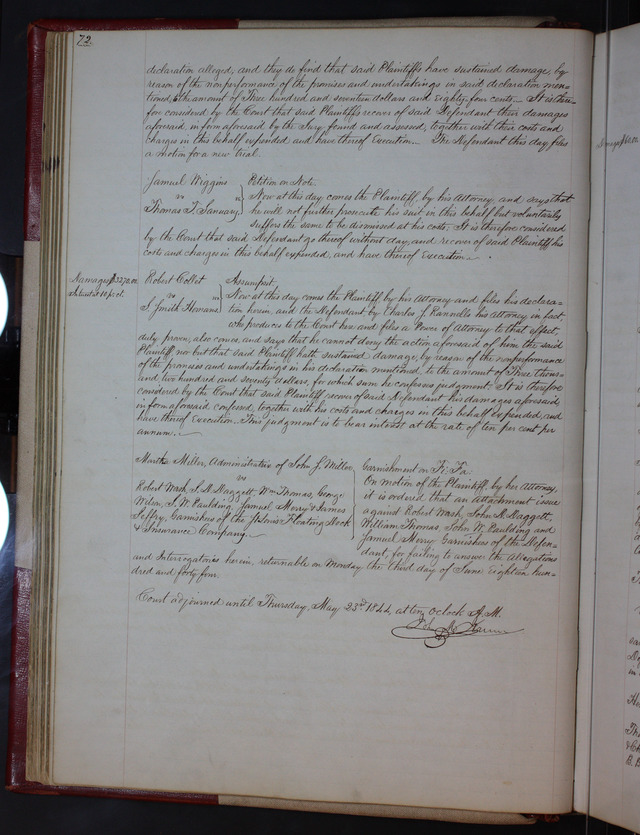 72.
declaration alleged, and they do find that said Plaintiffs have sustained damage, by
reason of the nonperformance of the promises and undertakings in said declaration men-
tioned, to the amount of Three hundred and seventeen dollars and eighty four cents. It is there-
fore considered by the Court that said Plaintiffs recover of said Defendant their damages
aforesaid in form aforesaid by the Jury found and assessed, together with their costs and
charges in this behalf expended and have thereof Execution. The Defendant this day files
a motion for a new trial.
Samuel Wiggins
vs
Thomas T. January
Petition on Note.
Now at this day comes the Plaintiff, by his Attorney, and says that
he will not further prosecute his suit in this behalf but voluntarily
suffers the same to be dismissed at his costs. It is therefore considered
by the Court that said Defendant go thereof without day, and recover of said Plaintiff his
costs and charges in this behalf expended, and have thereof Execution.
Damages $3270.00
Interest at 10 pr. ct.
Robert Collet
vs
J. Smith Homans
Assumpsit,
Now at this day comes the Plaintiff by his Attorney and files his declara-
tion herein, and the Defendant by Charles J. Rannells his Attorney in fact
who produces to the Court here and files a Power of Attorney to that effect,
duly proven, also comes, and says that he cannot deny the action aforesaid of him the said
Plaintiff, nor but that said Plaintiff hath sustained damage, by reason of the nonperformance
of the promises and undertakings in his declaration mentioned, to the amount of Three thous-
and, two hundred and seventy dollars, for which sum he confesses judgment. It is therefore
considered by the Court that said Plaintiff recover of said Defendant his damages aforesaid
in form aforesaid confessed, together with his costs and charges in this behalf expended, and
have thereof Execution. This judgment is to bear interest at the rate of ten per cent per
annum.
Martha Miller, Administratrix of John J. Miller
vs
Robert Wash, J. D. Daggett, Wm Thomas, George
Wilson, J. W. Paulding, Samuel Merry & James
Jeffry, Garnishees of the St. Louis Floating Dock
& Insurance Company.
Garnishment on Fi: Fa:
On motion of the Plaintiff by her Attorney,
it is ordered that an attachment issue
against Robert Wash, John D. Daggett,
William Thomas John W. Paulding and
Samuel Merry Garnishees of the Defen-
dant, for failing to answer the Allegations
and Interrogatories herein, returnable on Monday the third day of June Eighteen hun-
dred and forty four.
Court adjourned until Thursday, May 23rd 1844, at ten Oclock A.M.